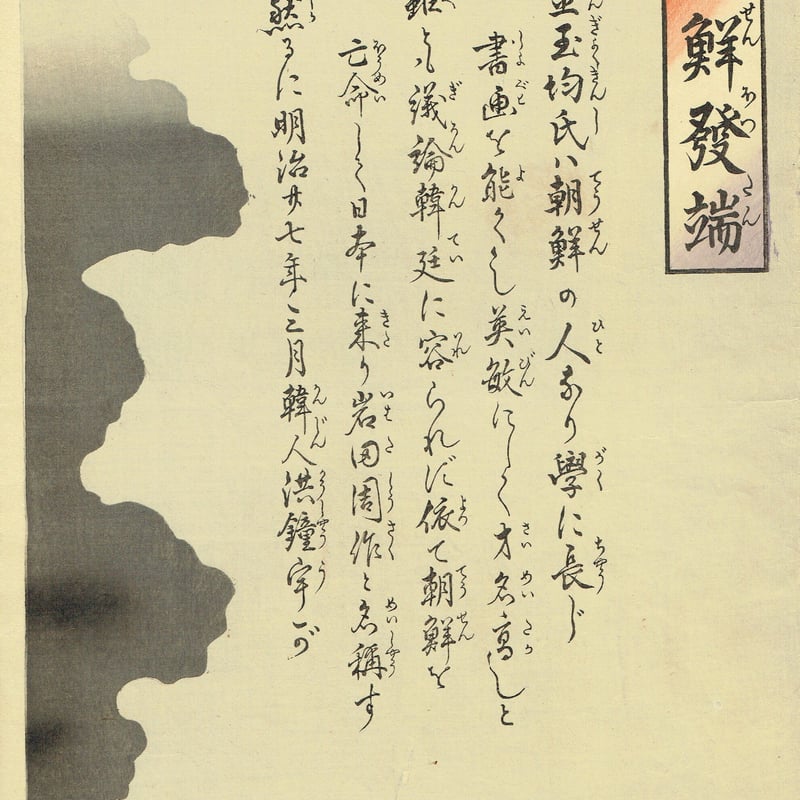 鮮發端
玉均氏ハ朝鮮の人なり學に長じ
書画を能くし英敏にして才名高しと
雖とも議論韓廷に容られず依て朝鮮を
亡命して日本に来り岩田周作と名称す
然るに明治廿七年三月韓人洪鐘宇が